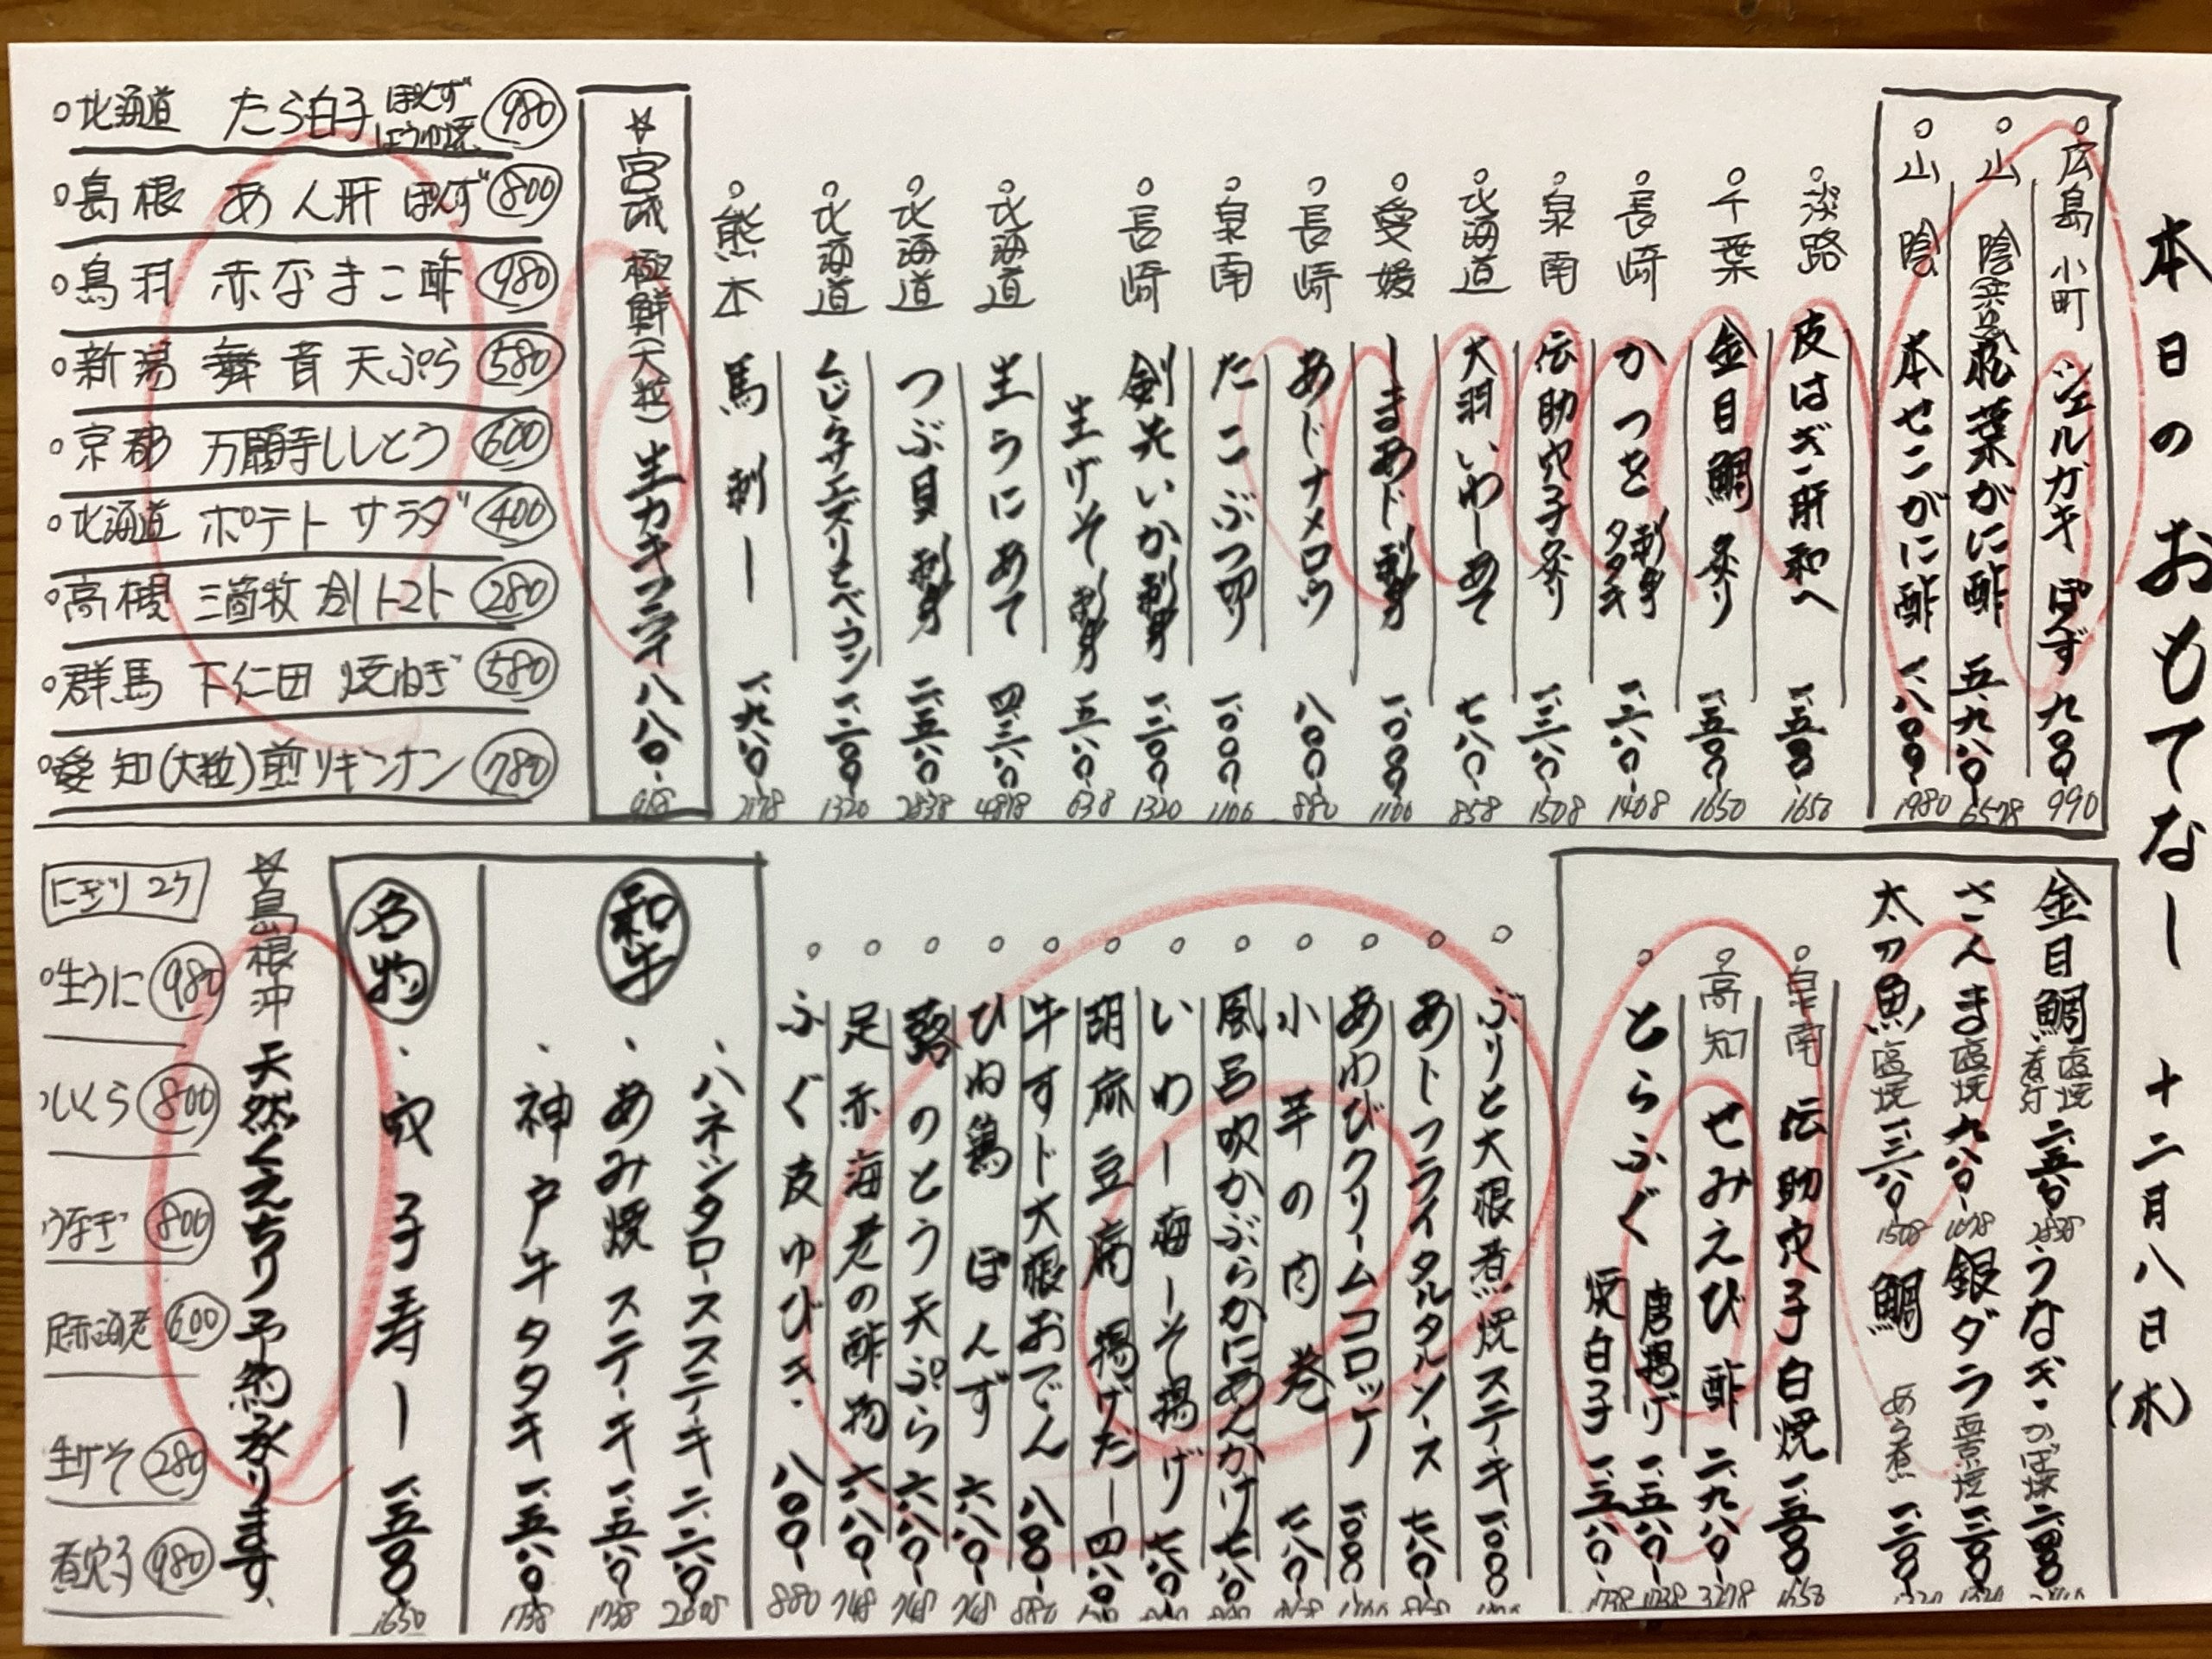 本日のおもてなし 十二月八日(水)
○広島 小町 シェルガキ ぽんず 九〇〇- 990
○山陰 (浜坂) 松葉がに酢 五.九八〇- 6578
○山陰 本せこがに酢 一.八〇〇- 1980
○淡路 皮はぎ肝和へ 一.五〇〇- 1650
○千葉 金目鯛 炙り 一.五〇〇- 1650
○長崎 かつを 刺身 タタキ 一.二八〇- 1408
○泉南 伝助穴子炙り 一.三八〇- 1508
○北海道 大羽いわしあて 七八〇- 858
○愛媛 しまあじ刺身 一.〇〇〇- 1100
○長崎 あじナメロウ 八〇〇- 880
○泉南 たこぶつ切り 一.〇〇〇- 1100
○長崎 剣先いか刺身 一.二〇〇- 1320
生げそ刺身 五八〇- 638
○北海道 生うにあて 四.三八〇- 4818
○北海道 つぶ貝刺身 二.五八〇- 2838
○北海道 くじらオエスリとベーコン 一.二〇〇- 1320
○熊本 馬刺し 一.九八〇- 2178
☆宮城 極鮮(大粒) 生カキフライ 八八〇- 968
○北海道 たら白子 ぽんず しょうゆ焼 980
○島根 あん肝 ぽんず 800
○鳥羽 赤なまこ酢 980
○新潟 舞茸天ぷら 580
○京都 万願寺ししとう 600
○北海道 ポテトサラダ 400
○高槻 三箇牧 創トマト 280
○群馬 下仁田 焼ねぎ 580
○愛知(大粒)煎りギンナン 780
金目鯛 塩焼 煮付 二.五八〇- 2838
うなぎ かば焼
さんま 塩焼 九八〇- 1078
銀ダラ 西京焼 一.二〇〇- 1320
太刀魚 塩焼 一.三八〇- 1508
鯛 あら煮 一.二〇〇- 1320
○泉南 伝助穴子白焼 一.五〇〇- 1650
○高知 せみえび酢 二.九八〇- 3278
○とらふぐ 唐揚げ 一.五八〇- 1738
焼白子 一.五八〇- 1738
○ぶりと大根煮焼ステーキ 一.〇〇〇
○あじフライタルタルソース 七八〇- 858
○あわびクリームコロッケ 一.〇〇〇- 1100
○小芋の肉巻 七八〇- 858
○風呂吹かぶらかにあんかけ 七八〇-
○いわし梅しそ揚げ 七八〇-
○胡麻豆腐揚げだし 四八〇-
○牛すじ大根おでん 八〇〇- 880
○ひね鶏 ぽんず 六八〇- 748
○蕗のとう天ぷら 六八〇- 748
○足赤海老の酢物 六八〇- 748
○ふぐ皮ゆびき 八〇〇- 880
和牛
、ハネシタロースステーキ 二.二八〇- 2508
、あみ焼ステーキ 一.五八〇- 1738
、神戸牛タタキ 一.五八〇- 1738
名物
、穴子寿し 一.五〇〇- 1650
☆島根沖 天然くえちり予約承ります、
にぎり 2ケ
○生うに 980
いくら 800
うなぎ 800
足赤海老 600
生げそ 280
煮穴子 980